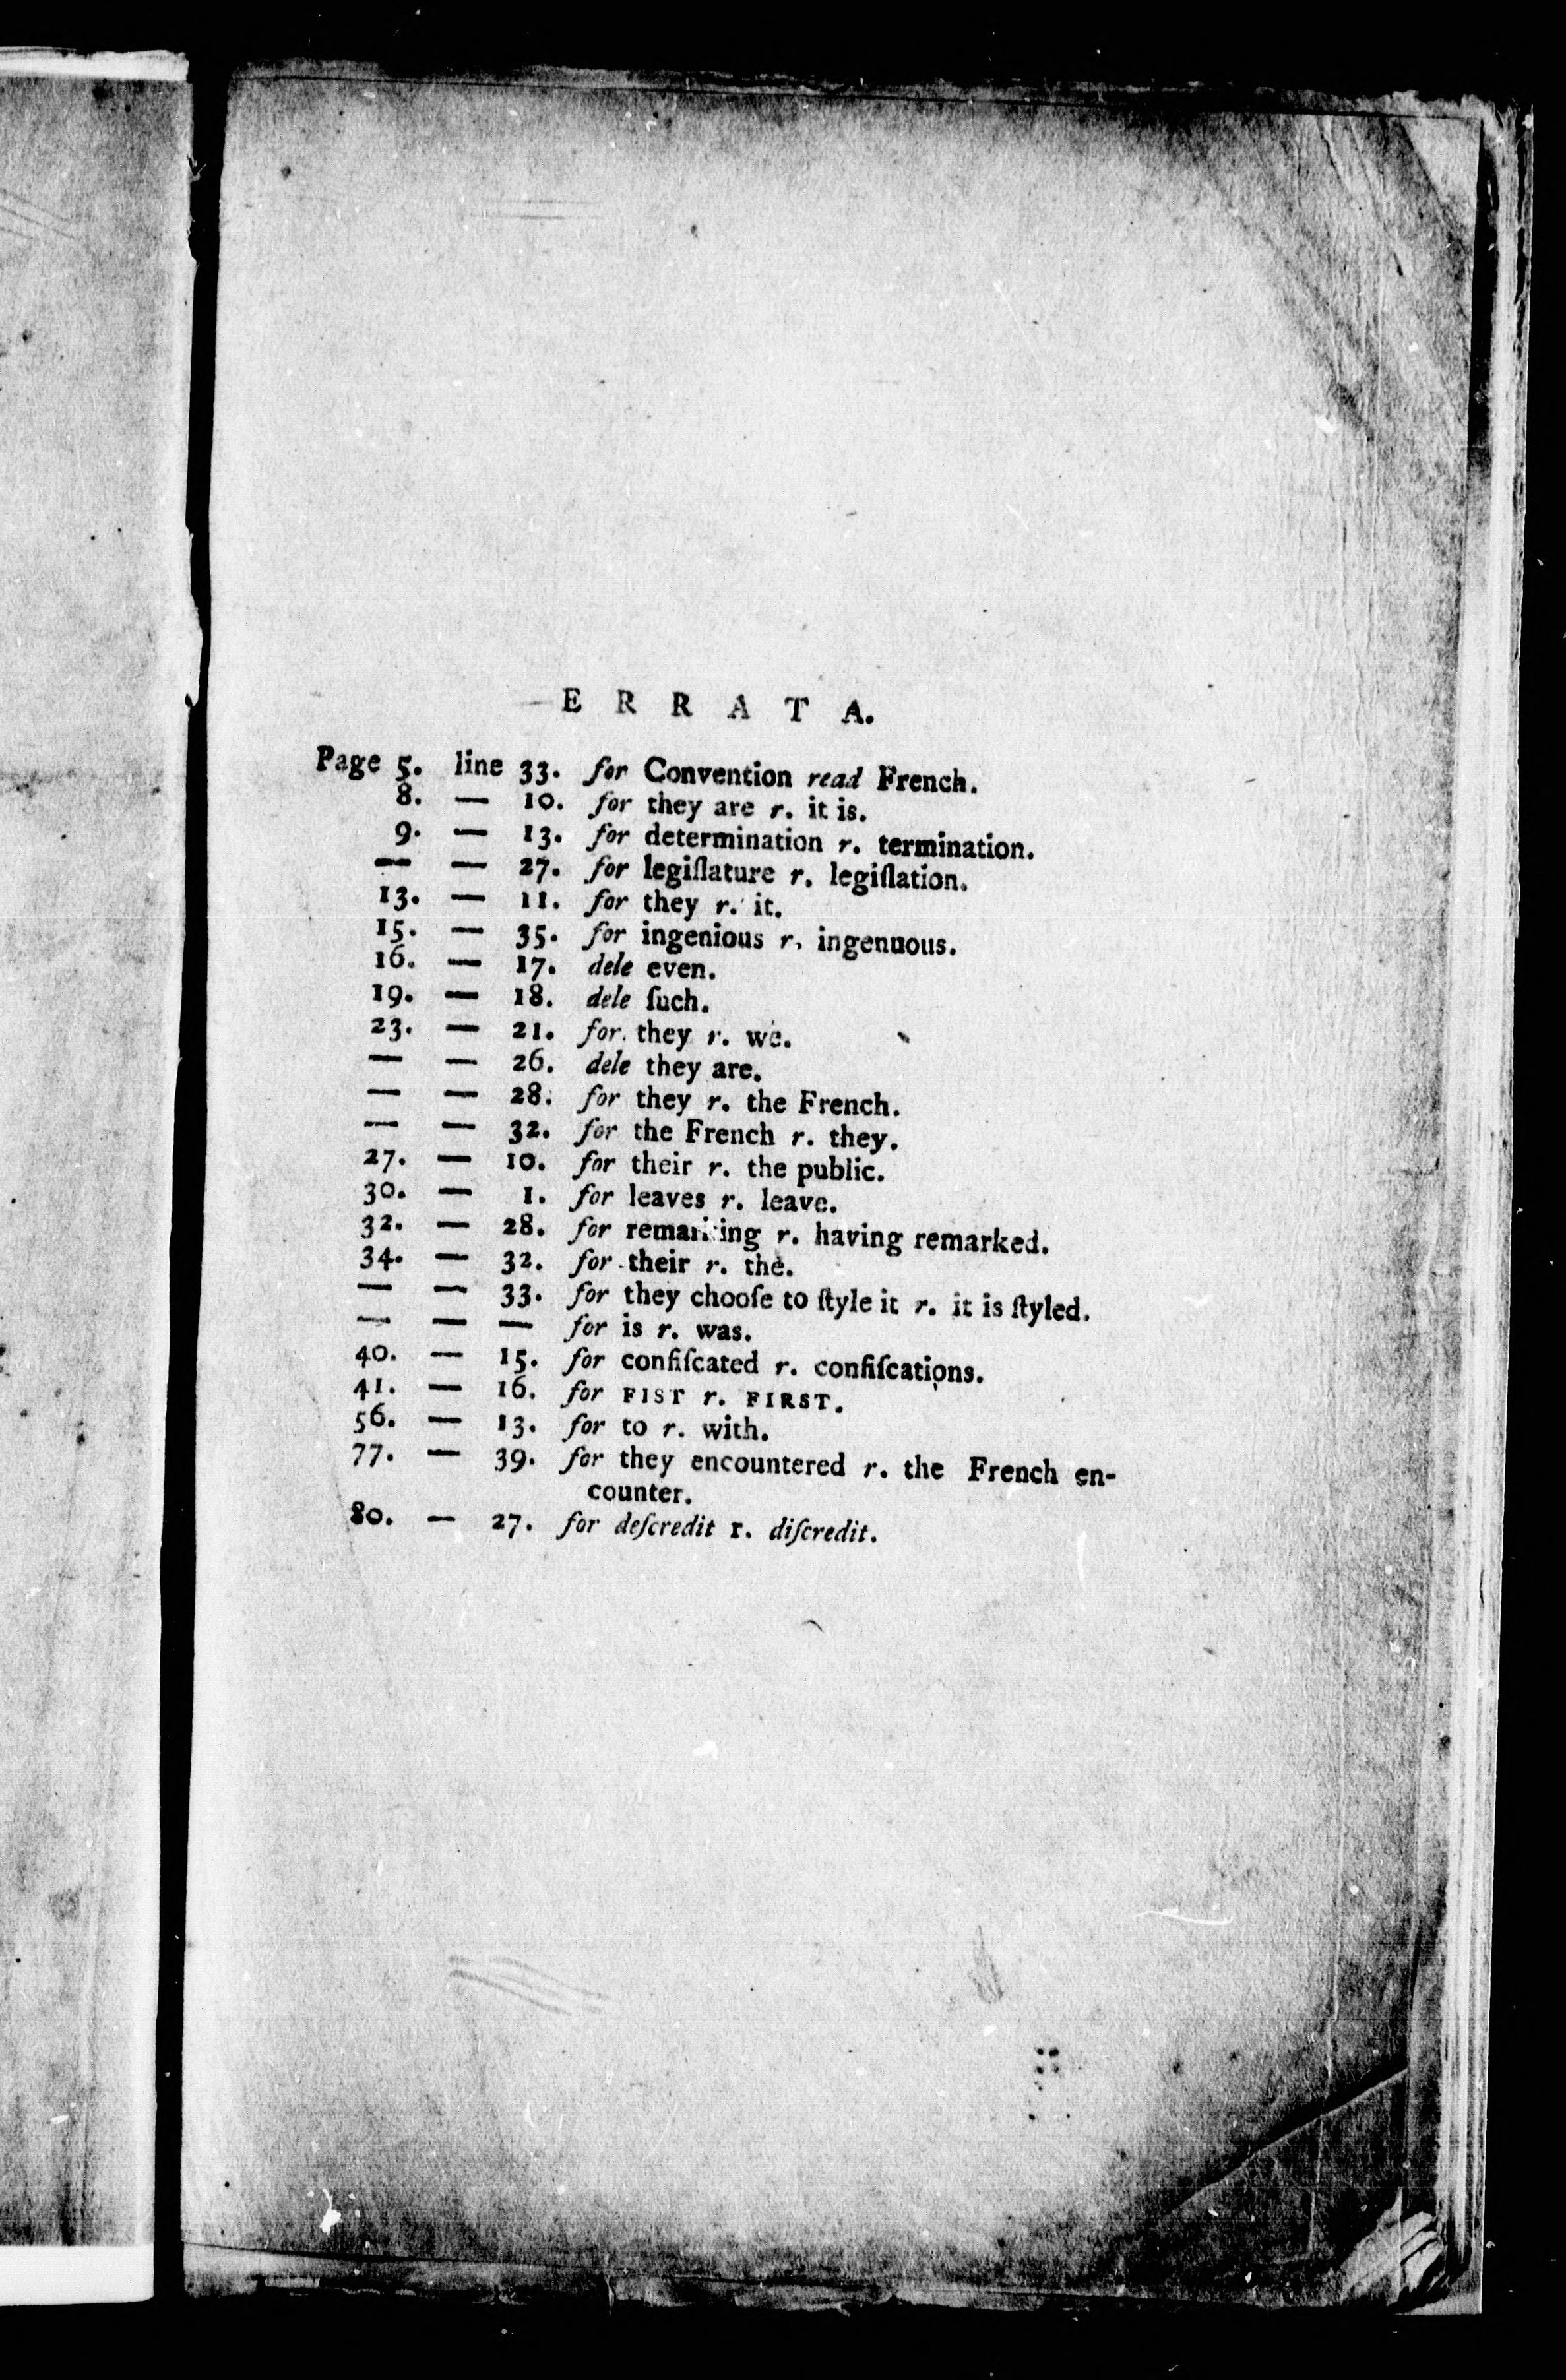 E R R A T A.
Page 5. line 33. for Convention read French.
8. — 10. for they are r. it is.
9. — 13. for determination r. termination.
— — 27. for legiſlature r. legiſlation.
13. — 11. for they r. it.
15. — 35. for ingenious r. ingenuous.
16. — 17. dele even.
19. — 18. dele ſuch.
23. — 21. for they r. we.
— — 26. dele they are.
— — 28. for they r. the French.
— — 32. for the French r. they.
27. — 10. for their r. the public.
30. — 1. for leaves r. leave.
32. — 28. for remarking r. having remarked.
34. — 32. for their r. the.
— — 33. for they chooſe to ſtyle it r. it is ſtyled.
— — — for is r. was.
40. — 15. for confiſcated r. confiſcations.
41. — 16. for FIST r. FIRST.
56. — 13. for to r. with.
77. — 39. for they encountered r. the French en-
counter.
80. — 27. for deſcredit r. diſcredit.